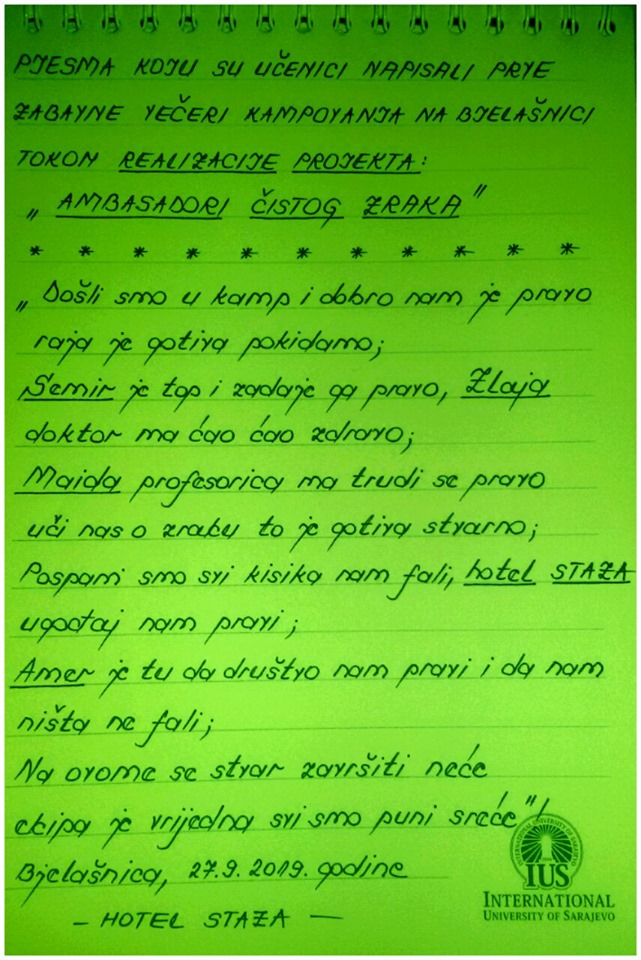 PJESMA KOJU SU UČENICI NAPISALI PRIJE
ZABAVNE VEČERI KAMPOVANJA NA BJELAŠNICI
TOKOM REALIZACIJE PROJEKTA:
„AMBASADORI ČISTOG ZRAKA"
* * * * * * * * * * *
„Došli smo u kamp i dobro nam je pravo
raja je gotiva pokidamo;
Semir je top i zadaje ga pravo, Zlaja
doktor ma ćao ćao zdravo;
Maida profesorica ma trudi se pravo
uči nas o zraku to je gotiva stvarno;
Pospani smo svi kisika nam fali, hotel STAZA
ugođaj nam pravi;
Amer je tu da društvo nam pravi i da nam
ništa ne fali;
Na ovome se stvar završiti neće
ekipa je vrijedna svi smo puni sreće"!
Bjelašnica, 27.9.2019. godine
- HOTEL STAZA -
IUS
INTERNATIONAL
UNIVERSITY OF SARAJEVO